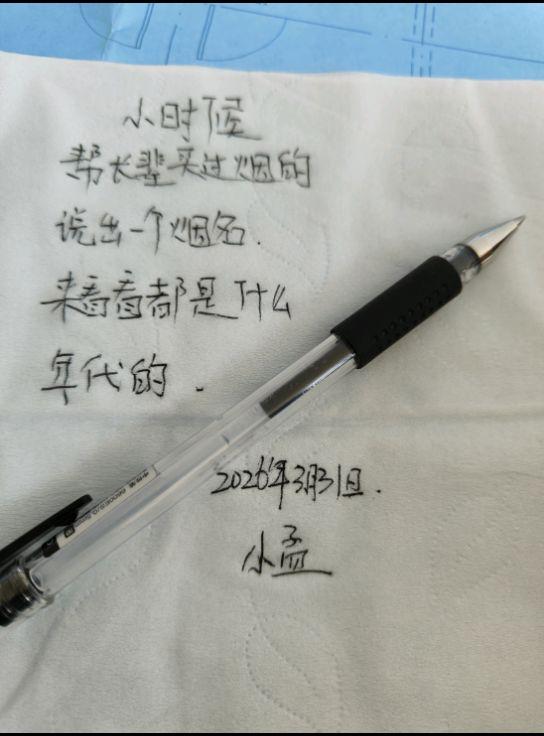 小时候
帮长辈买过烟的
说出一个烟名.
来看看都是什么
年代的.
2026年3月31日.
小孟